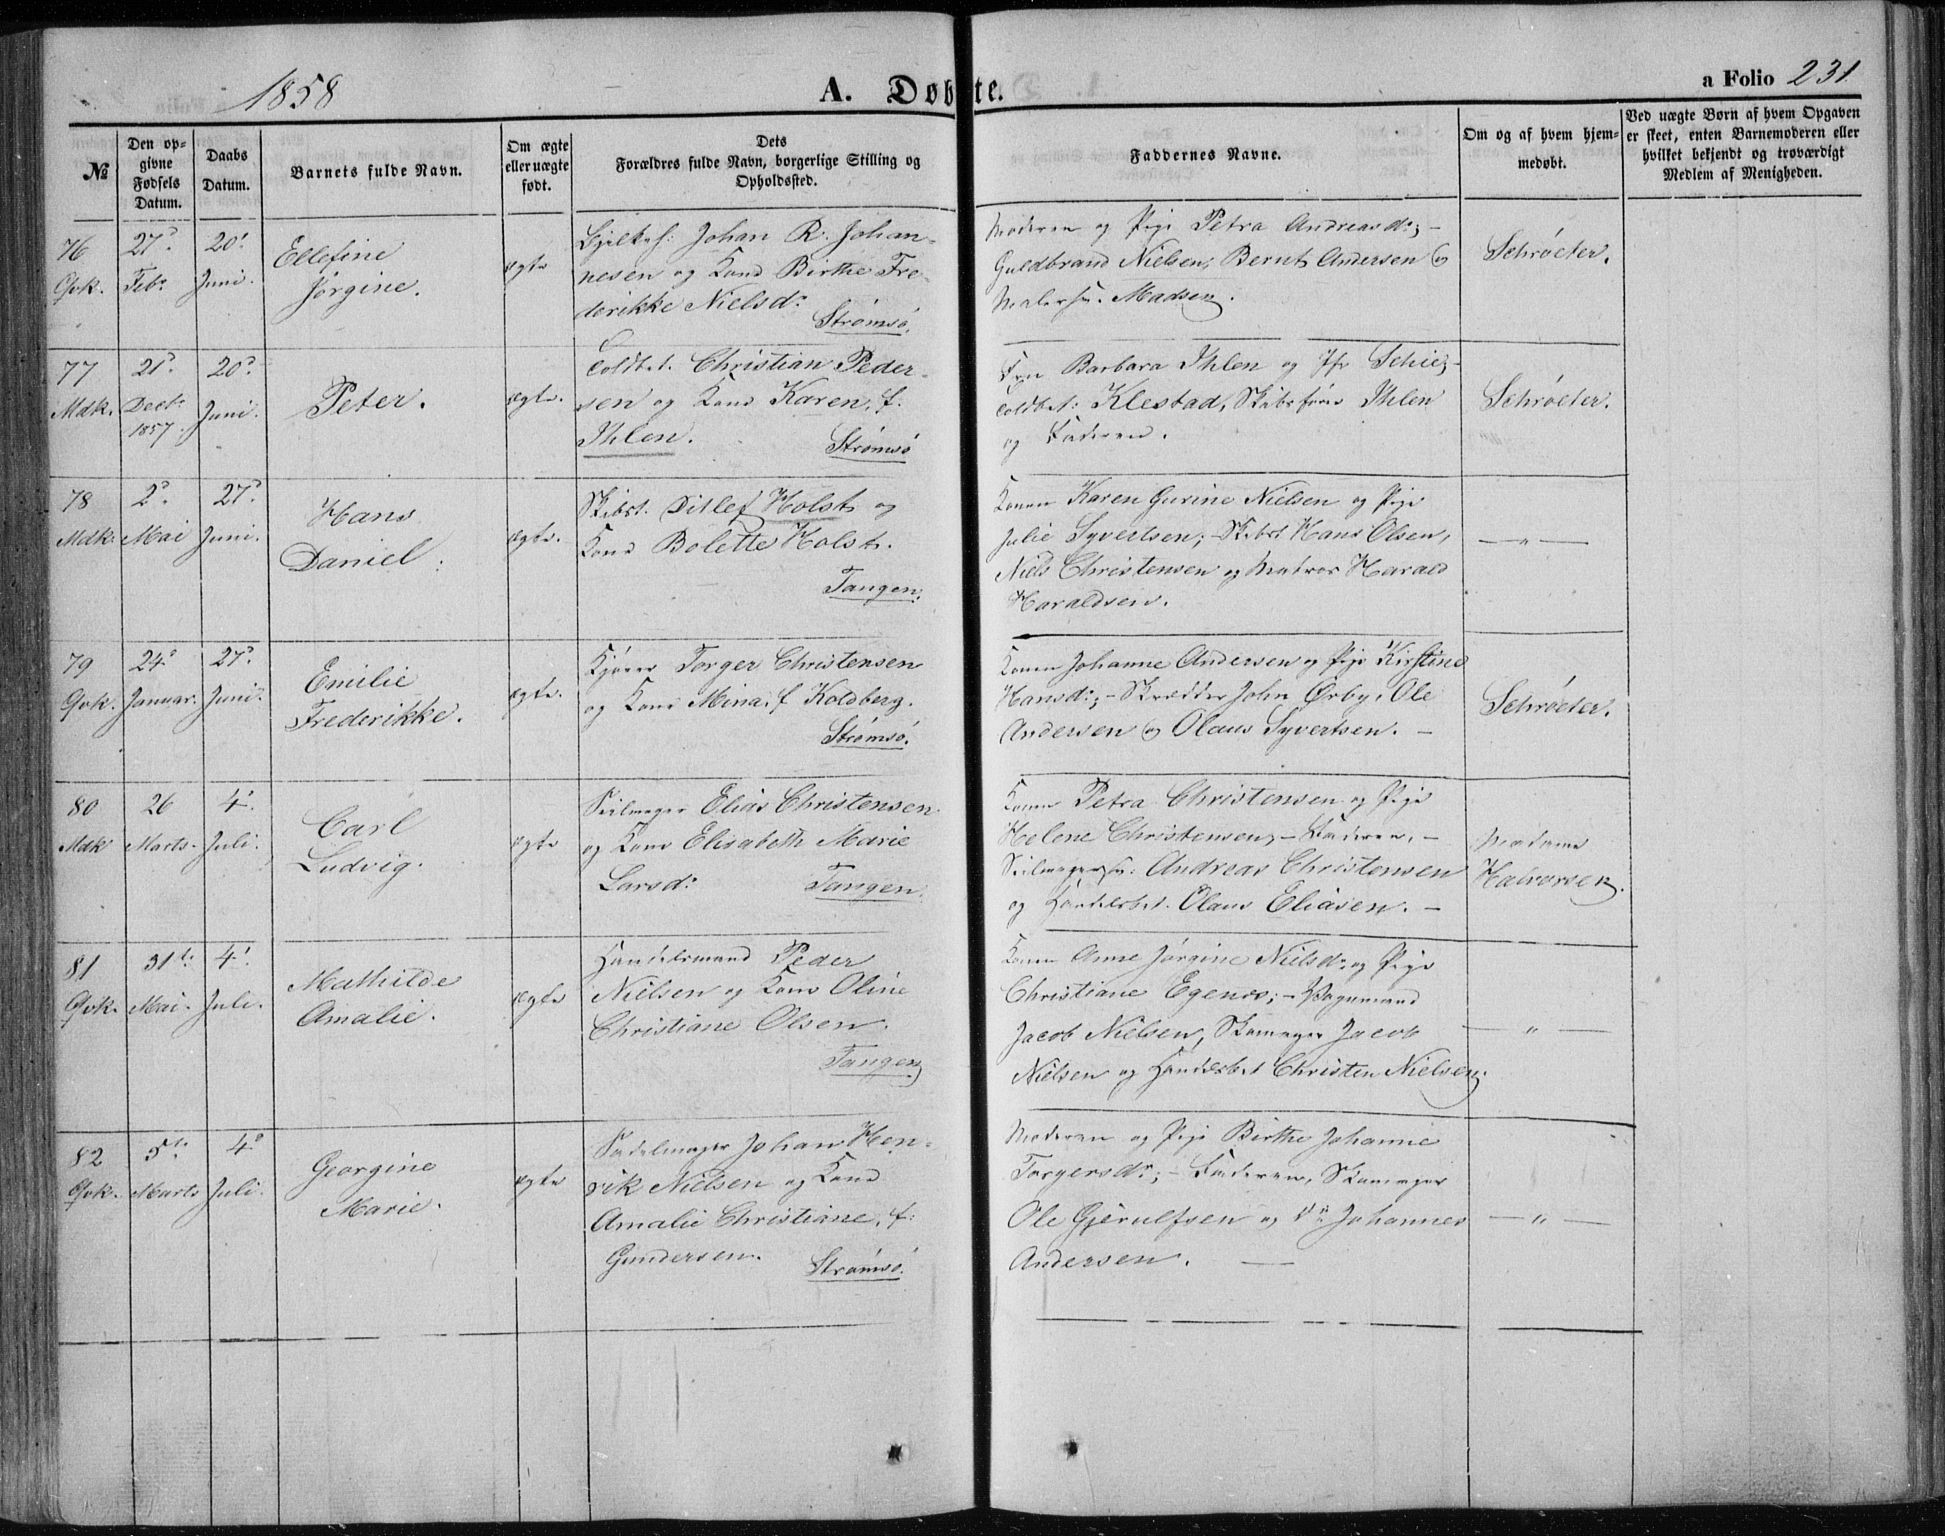 1858
A. Døbte.
a Folio 231
№
Den op-
givne
Fødsels
Datum.
Daabs
Datum.
Barnets fulde Navn.
Om ægte
eller uægte
født.
Dets
Forældres fulde Navn, borgerlige Stilling og
Opholdssted.
Faddernes Navne.
Om og af hvem hjem-
medøbt.
Ved uægte Børn af hvem Opgaven
er skeet, enten Barnemoderen eller
hvilket bekjendt og troværdigt
Medlem af Menigheden.
76
Qvk.
27d.
Febr.
20d.
Juni.
Ellefine
Jørgine.
ægte
Johan R. Johan-
nesen og Kone Birthe Fre-
derikke Nielsdr.
Strømsø.
Moderen og Pige Petra Andreasdr; -
Guldbrand Nielsen, Bernt Andersen og
Malersv. Madsen.
Schrøeter.
77
Mdk.
21d.
Decbr.
1857.
20d.
Juni.
Peter.
ægte.
Toldbet. Christian Peder-
sen og Kone Karen, f.
Ihlen.
Strømsø
Fru Barbara Ihlen og Jfr Schie; -
Toldbet: Klestad, Skibsfører Ihlen
og Faderen.
Schrøeter.
78
Mdk.
2d.
Mai
27d.
Juni.
Hans
Daniel.
ægte.
Skibst. Ditlef Holst og
Kone Bolette Holst.
Tangen.
Konen Karen Gurine Nielsen og Pige
Julie Syvertsen; - Skibst Hans Olsen,
Niels Christensen og Matros Harald
Haraldsen.
— " —
79
Qvk.
24d
Januar.
27d.
Juni.
Emilie
Frederikke.
ægte.
Kjører Torger Christensen
og Kone Mina, f Koldberg.
Strømsø.
Konen Johanne Andersen og Pige Kirstine
Hansdr; - Skrædder John Ørby, Ole
Andersen og Olaus Syvertsen. —
Schrøeter.
80
Mdk
26
Marts.
4d.
Juli.
Carl
Ludvig.
ægte
Seilmager Elias Christensen
og Kone Elisabeth Marie
Larsdr.
Tangen.
Konen Petra Christensen og Pige
Helene Christensen; - Faderen, -
Seilmagersv. Andreas Christensen
og Handelsbet. Olaus Eliasen. —
Madame
Halvorsen.
81
Qvk.
31te.
Mai.
4d.
Juli.
Mathilde
Amalie.
ægte
Handelsmand Peder
Nielsen og Kone Oline
Christiane Olsen.
Tangen
Konen Anne Jørgine Nielsdr. og Pige
Christiane Egenes; -
Jacob Nielsen, Skomager Jacob
Nielsen og Handelsbet Christen Nielsen.
— " —
82
Qvk.
5te.
Marts
4d
Juli.
Georgine
Marie.
ægte
Sadelmager Johan Hen-
rik Nielsen og Kone
Amalie Christiane, f.
Gundersen.
Strømsø.
Moderen og Pige Birthe Johanne
Torgersdr; - Faderen, Skomager
Ole Gjerulfsen og Do Johannes
Andersen. —
— " —